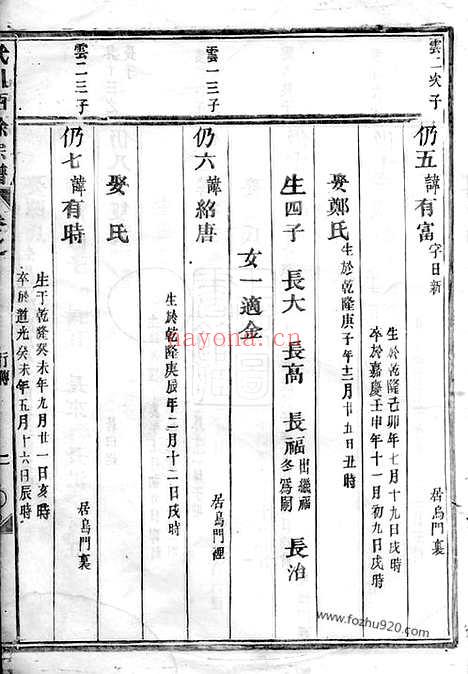 雲二次子
仍五諱有富字日新
居烏門裏
生於乾隆己卯年七月十九日戌時
卒於嘉慶壬申年十一月初九日戌時
娶鄭氏生於乾隆庚子年十二月廿五日丑時
生四子 長大 長高 長福出繼福冬為嗣 長治
女一適金
雲一三子
仍六諱紹唐
居烏門裡
生於乾隆庚辰年二月十二日戌時
娶 氏
雲二三子
仍七諱有時
居烏門裏
生于乾隆癸未年九月廿一日亥時
卒於道光癸未年五月十六日辰時
西徐宗譜
行傳
二
nayona.cn
www.fozhu920.com